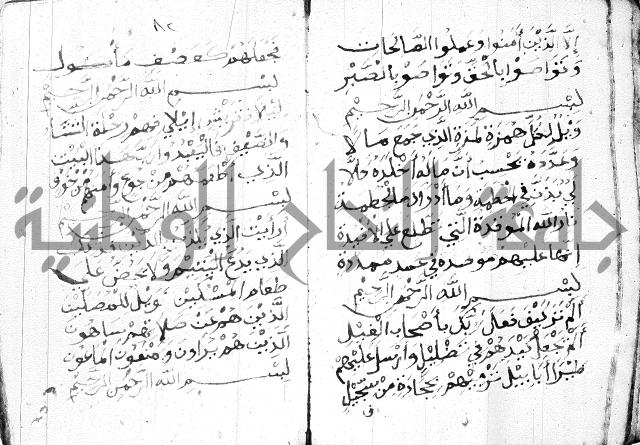 إلا الذين أمنوا وعملوا الصالحات
وتواصوا بالحق وتواصوا بالصبر
بسم الله الرحمن الرحيم
ويل لكل همزة لمزة الذي جمع مالا
وعدده يحسب أن ماله أخلده كلا
لينبذن في الحطمه وما أدراك ما الحطمه
نار الله الموقدة التي تطلع على الافيدة
انها عليهم موصده في عمد ممددة
بسم الله الرحمن الرحيم
ألم تر كيف فعل ربك بأصحاب الفيل
ألم يجعل كيدهم في تضليل وأرسل عليهم
طيرا أبابيل ترميهم بحجارة من سجيل
٨٢
فجعلهم كعصف مأكول
بسم الله الرحمن الرحيم
لإيلاف قريش إيلافهم رحلة الشتاء
والصيف فاليعبدوا رب هذا البيت
الذي أطعمهم من جوع وأمنهم من خوف
بسم الله الرحمن الرحيم
أرأيت الذي يكذب
الذي يدع اليتيم ولا يحض على
طعام المسكين فويل للمصلين
الذين هم عن صلاتهم ساهون
الذين هم يراون ويمنعون الماعون
بسم الله الرحمن الرحيم
جامعة النجاح الوطنية